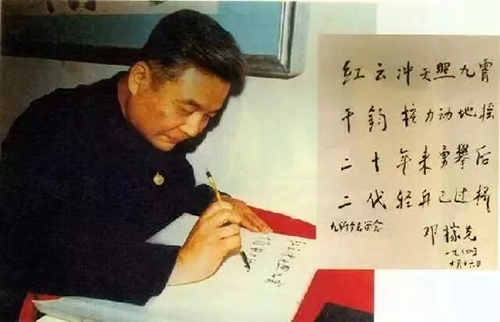 红云冲天照九霄
千钧核力动地摇
二十年来勇攀后
二代轻舟已过桥
邓稼先
一九八四
十月十六日